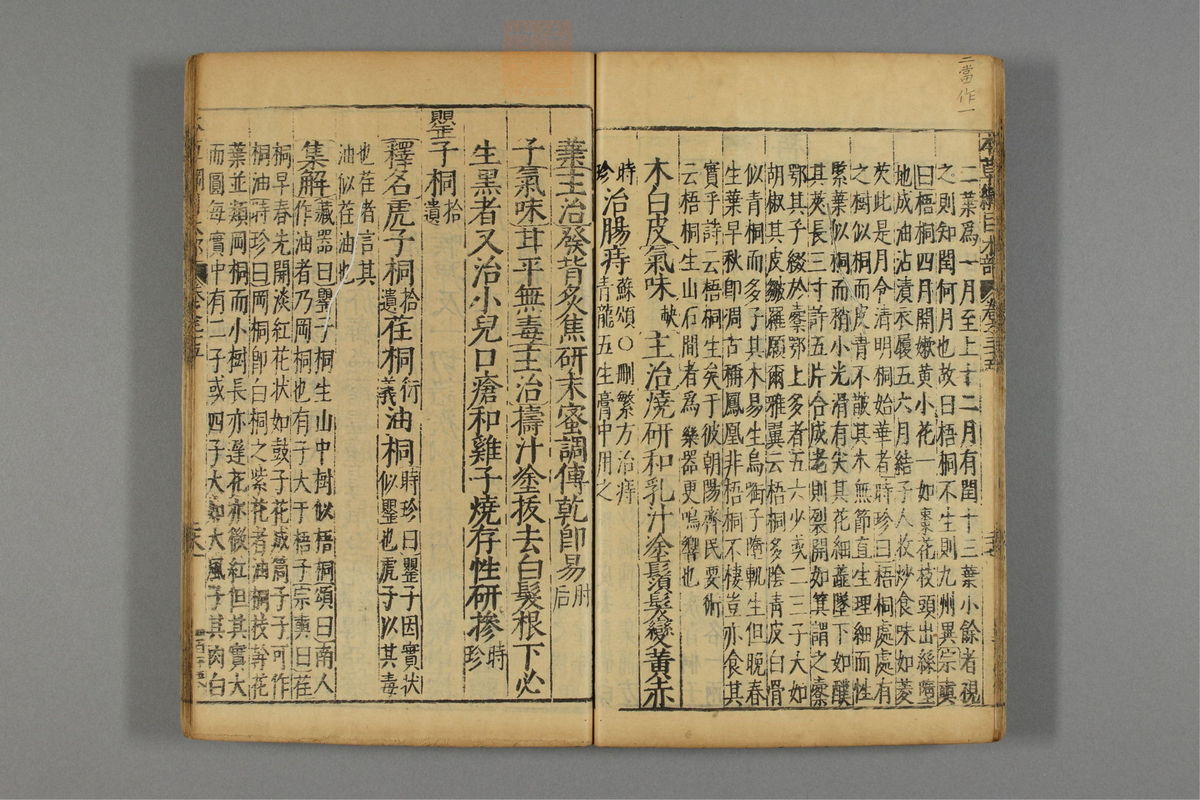 二當作一
本草綱目木部 卷之三十五
二葉為一月至上十二月有閏十三葉小餘者視
之則知閏何月也故曰梧桐不生則九州異宗奭
曰梧桐四月開嫩黃小花一如棗花枝頭出絲墮
地成油沾漬衣履五六月結子人收炒食味如菱
芡此是月令清明桐始華者時珍曰梧桐處處有
之樹似桐而皮青不皵其木無節直生理細而性
緊葉似桐而稍小光滑有尖其花細蕊墜下如醭
其莢長三寸許五片合成老則裂開如箕謂之橐
鄂其子綴於橐鄂上多者五六少或二三子大如
胡椒其皮皺羅願爾雅翼云梧桐多陰青皮白骨
似青桐而多子其木易生鳥銜子墮輒生但晚春
生葉早秋即凋古稱鳳凰非梧桐不棲豈亦食其
實乎詩云梧桐生矣于彼朝陽齊民要術
云梧桐生山石間者為樂器更鳴響也
木白皮氣味缺主治燒研和乳汁塗鬚髮變黃赤
時珍治腸痔蘇頌○刪繁方治痔
青龍五生膏中用之
葉主治發背炙焦研末蜜調傅乾即易肘后
子氣味甘平無毒主治擣汁塗拔去白髮根下必
生黑者又治小兒口瘡和雞子燒存性研摻時珍
罌子桐拾遺
釋名虎子桐拾遺荏桐衍義油桐時珍曰罌子因實狀
似罌也虎子以其毒
也荏者言其
油似荏油也
集解藏器曰罌子桐生山中樹似梧桐頌曰南人
作油者乃岡桐也有子大于梧子宗奭曰荏
桐早春先開淡紅花狀如鼓子花成筒子子可作
桐油時珍曰岡桐即白桐之紫花者油桐枝幹花
葉並類岡桐而小樹長亦遲花亦微紅但其實大
而圓每實中有二子或四子大如大風子其肉白